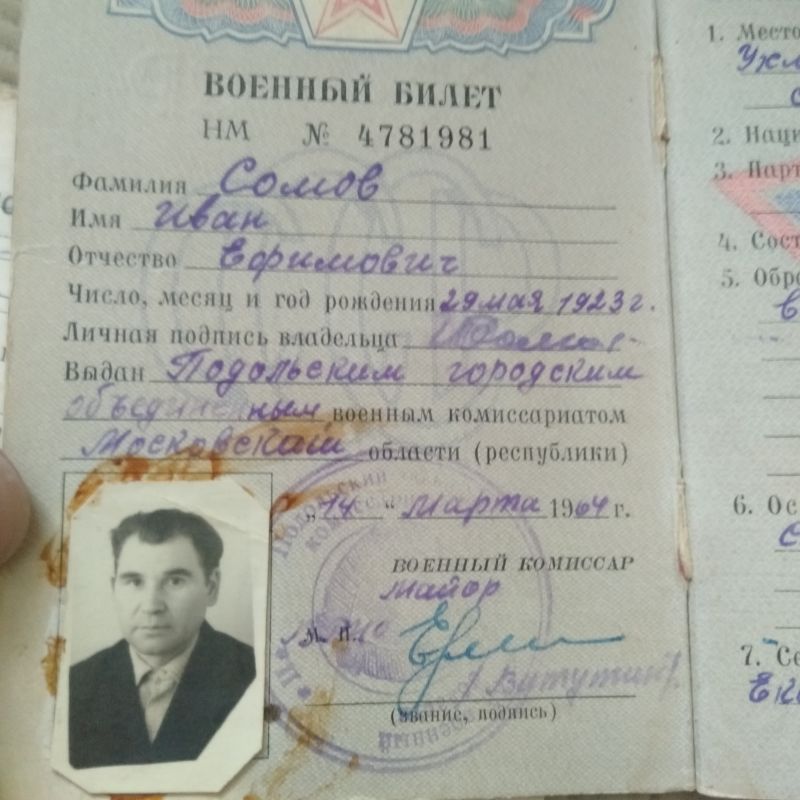 ВОЕННЫЙ БИЛЕТ
НМ № 4781981
Фамилия Сомов
Имя Иван
Отчество Ефимович
Число, месяц и год рождения 29 мая 1923 г.
Личная подпись владельца
Выдан Подольским городским
объединенным военным комиссариатом
Московской области (республики)
„14“ марта 1964 г.
ВОЕННЫЙ КОМИССАР
майор
М. П.
(звание, подпись)
1. Место
2. Наци
3. Парт
4. Сост
5. Обра
6. Ос
7. Се